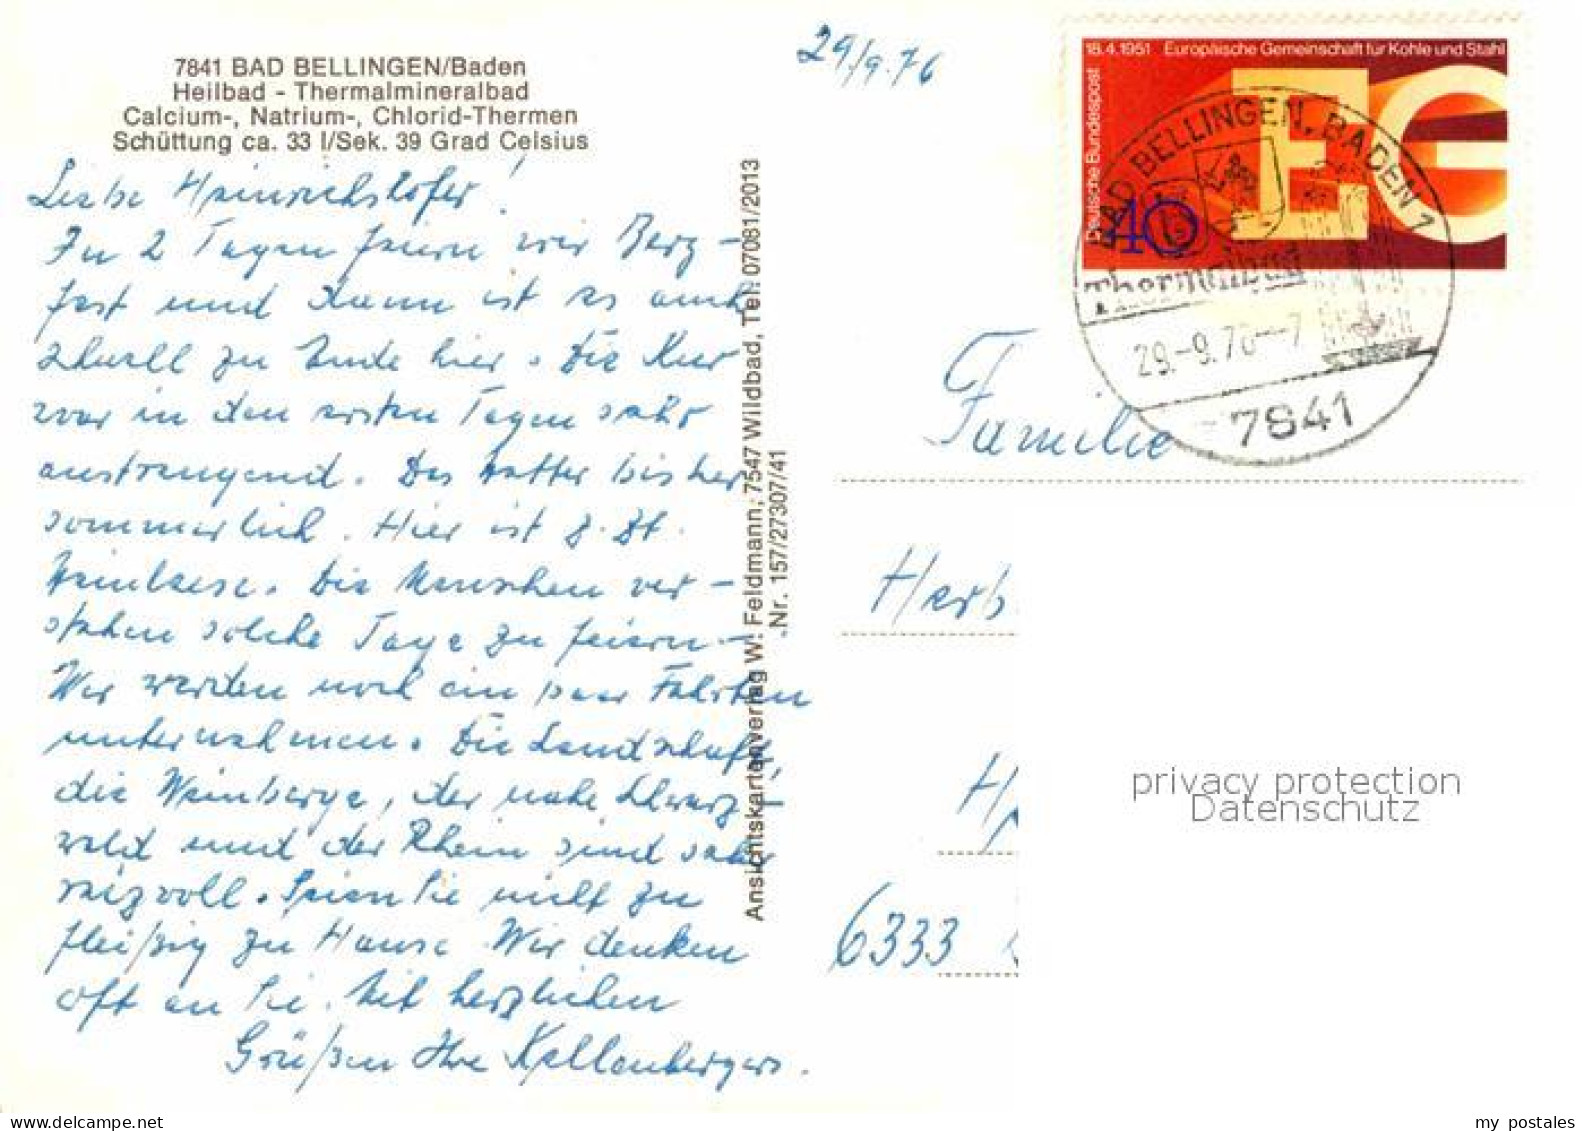 29/9.76
7841 BAD BELLINGEN/Baden
Heilbad - Thermalmineralbad
Calcium-, Natrium-, Chlorid-Thermen
Schüttung ca. 33 l/Sek. 39 Grad Celsius
Liebe Heinrichshofer!
In 2 Tagen feiern wir Berg-
fest und dann ist es auch
schnell zu Ende hier. Die Kur
war in den ersten Tagen sehr
anstrengend. Das Wetter bisher
sommerlich. Hier ist z. Zt.
Weinlese. Die Menschen ver-
stehen solche Tage zu feiern.
Wir werden noch ein paar Fahrten
unternehmen. Die Landschaft,
die Weinberge, der nahe Schwarz-
wald und der Rhein sind sehr
reizvoll. Seien Sie nicht zu
fleißig zu Hause. Wir denken
oft an Sie. Mit herzlichen
Grüßen Ihre Kellenbergers.
Ansichtskartenverlag W. Feldmann, 7547 Wildbad, Tel. 07081/2013
Nr. 157/27307/41
18.4.1951 Europäische Gemeinschaft für Kohle und Stahl
Deutsche Bundespost
EG
40
BAD BELLINGEN, BADEN 1
Thermalbad
29.-9.76--7
7841
Familie
Herb
6333
privacy protection
Datenschutz
my postales